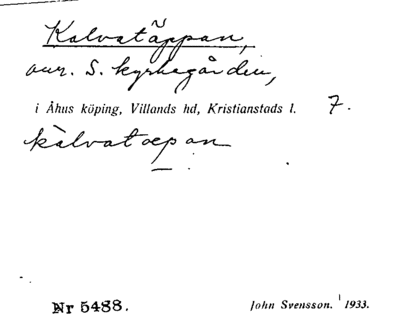 Kalvatäppan,
avr. S. kyrkogården,
i Åhus köping, Villands hd, Kristianstads l. 7.
kàlvatæpan
Nr 5488. John Svensson. 1933.